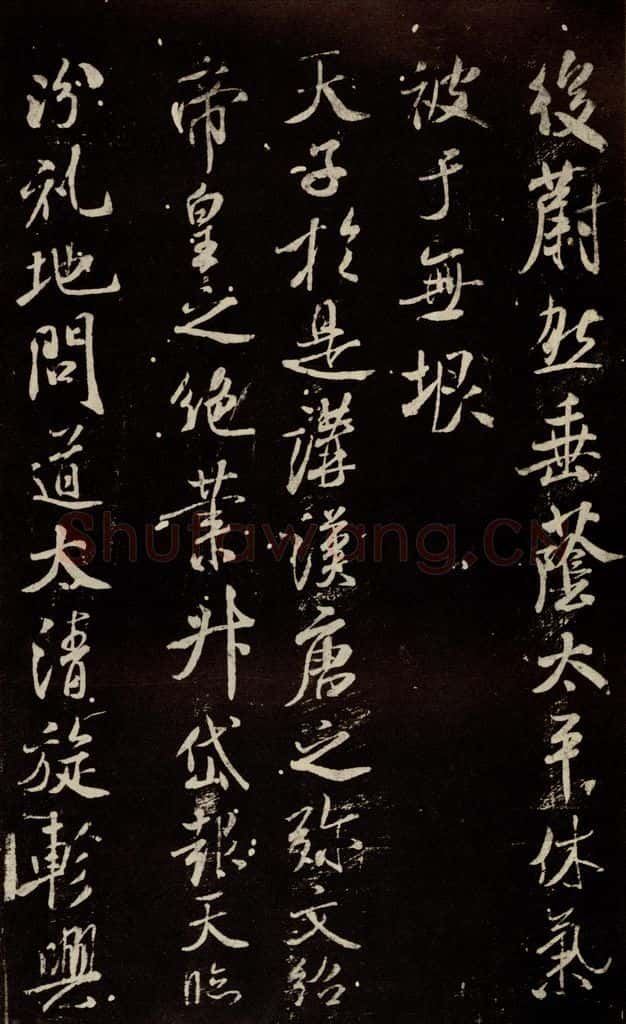 後蔚然垂蔭太平休氣
被于無垠
天子於是講漢唐之弥文紹
帝皇之絶業升岱報天臨
汾礼地問道太清旋軫興
Shufawang.CN